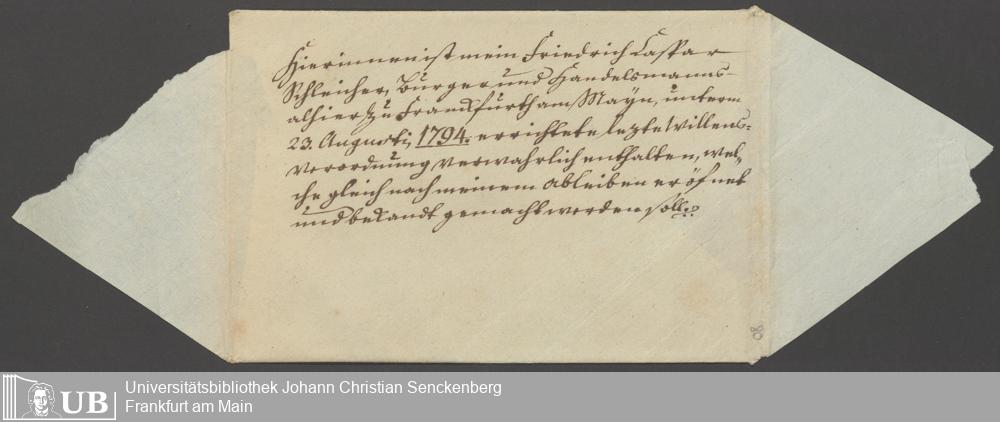 Hierinnen ist mein Friedrich Caspar
Schleicher, Burger und Handelsmanns
alhier zu Franckfurth am Mayn, unterm
23. Augusti, 1794. errichtete lezte Willens-
verordnung verwahrlich enthalten, wel-
che gleich nach meinem Ableiben eröfnet
und bekandt gemacht werden solle.
80
UB
Universitätsbibliothek Johann Christian Senckenberg
Frankfurt am Main